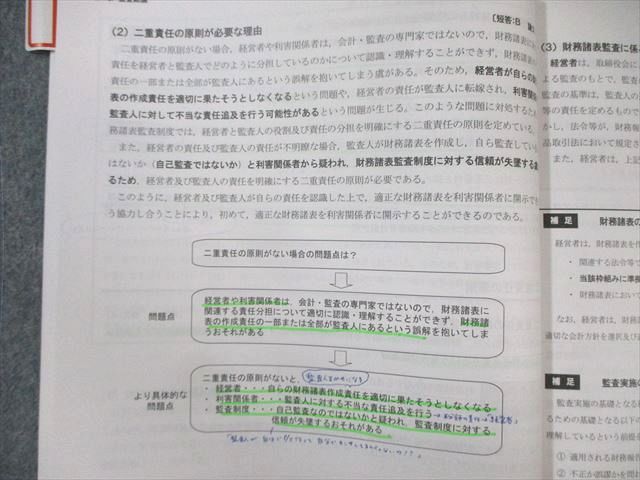 〔短答：B
(2) 二重責任の原則が必要な理由
二重責任の原則がない場合，経営者や利害関係者は，会計・監査の専門家ではないので，財務諸表に
責任を経営者と監査人でどのように分担しているのかについて認識・理解することができず，財務諸表の
責任の一部または全部が監査人にあるという誤解を抱いてしまう虞がある。そのため，経営者が自らの
表の作成責任を適切に果たそうとしなくなるという問題や，経営者の責任が監査人に転嫁され，利害
監査人に対して不当な責任追及を行う可能性があるという問題が生じる。このような問題に対処すると
務諸表監査制度では，経営者と監査人の役割及び責任の分担を明確にする二重責任の原則を定めている。
また，経営者の責任及び監査人の責任が不明瞭な場合，監査人が財務諸表を作成し，自ら監査してい
はないか（自己監査ではないか）と利害関係者から疑われ，財務諸表監査制度に対する信頼が失墜する
るため，経営者及び監査人の責任を明確にする二重責任の原則が必要である。
このように，経営者及び監査人が自らの責任を認識した上で，適正な財務諸表を利害関係者に開示でき
う協力し合うことにより，初めて，適正な財務諸表を利害関係者に開示することができるのである。
二重責任の原則がない場合の問題点は？
問題点
経営者や利害関係者は，会計・監査の専門家ではないので，財務諸表に
関連する責任分担について適切に認識・理解することができず，財務諸
表の作成責任の一部または全部が監査人にあるという誤解を抱いてしま
うおそれがある
より具体的な
問題点
二重責任の原則がないと，
・ 経営者・・・自らの財務諸表作成責任を適切に果たそうとしなくなる
・ 利害関係者・・・監査人に対する不当な責任追及を行う
・ 監査制度・・・自己監査なのではないかと疑われ，監査制度に対する
信頼が失墜するおそれがある
(3) 財務諸表監査に係
経営者は，取締役会に
よる監査のもとで，
監査の基準は，監査人の
等の責任を定めるもので
かし，法令等が，財務諸
品取引法において規定さ
また，経営者は，上記
補 足
財務諸表の
経営者は，財務諸表を作
・ 関連する法令等で
・ 当該枠組みに準拠
・ 財務諸表において
なお，経営者は，財務
適切な会計方針を選択及び
補 足
監査実施の
監査実施の基礎となる
るための基礎となる以下の
理解しているという前提
① 適用される財務報告
② 不正か誤謬かを問わ